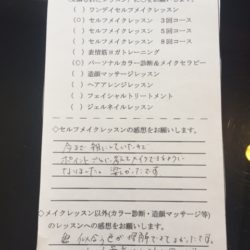 ( ) ワンデイセルフメイクレッスン
(○) セルフメイクレッスン 3回コース
( ) セルフメイクレッスン 5回コース
( ) セルフメイクレッスン 8回コース
( ) 表情筋ヨガトレーニング
(○) パーソナルカラー診断&メイクセラピー
( ) 造顔マッサージレッスン
( ) ヘアアレンジレッスン
( ) フェイシャルトリートメント
( ) ジェルネイルレッスン
◇セルフメイクレッスンの感想をお願いします。
今まで
ポイントごとに
なりました。 楽しかったです
◇メイクレッスン以外(カラー診断・造顔マッサージ等)
のレッスンへの感想をお願いします。
色 似合う色が理解できてよかったです。